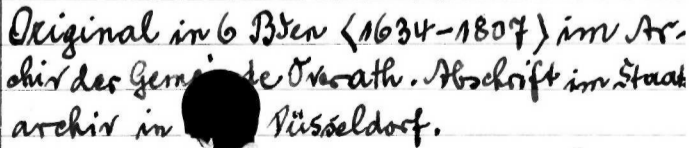 Original in 6 Bden (1634-1807) im Ar-
chiv der Gemeinde Overath. Abschrift im Staats
archiv in Düsseldorf.